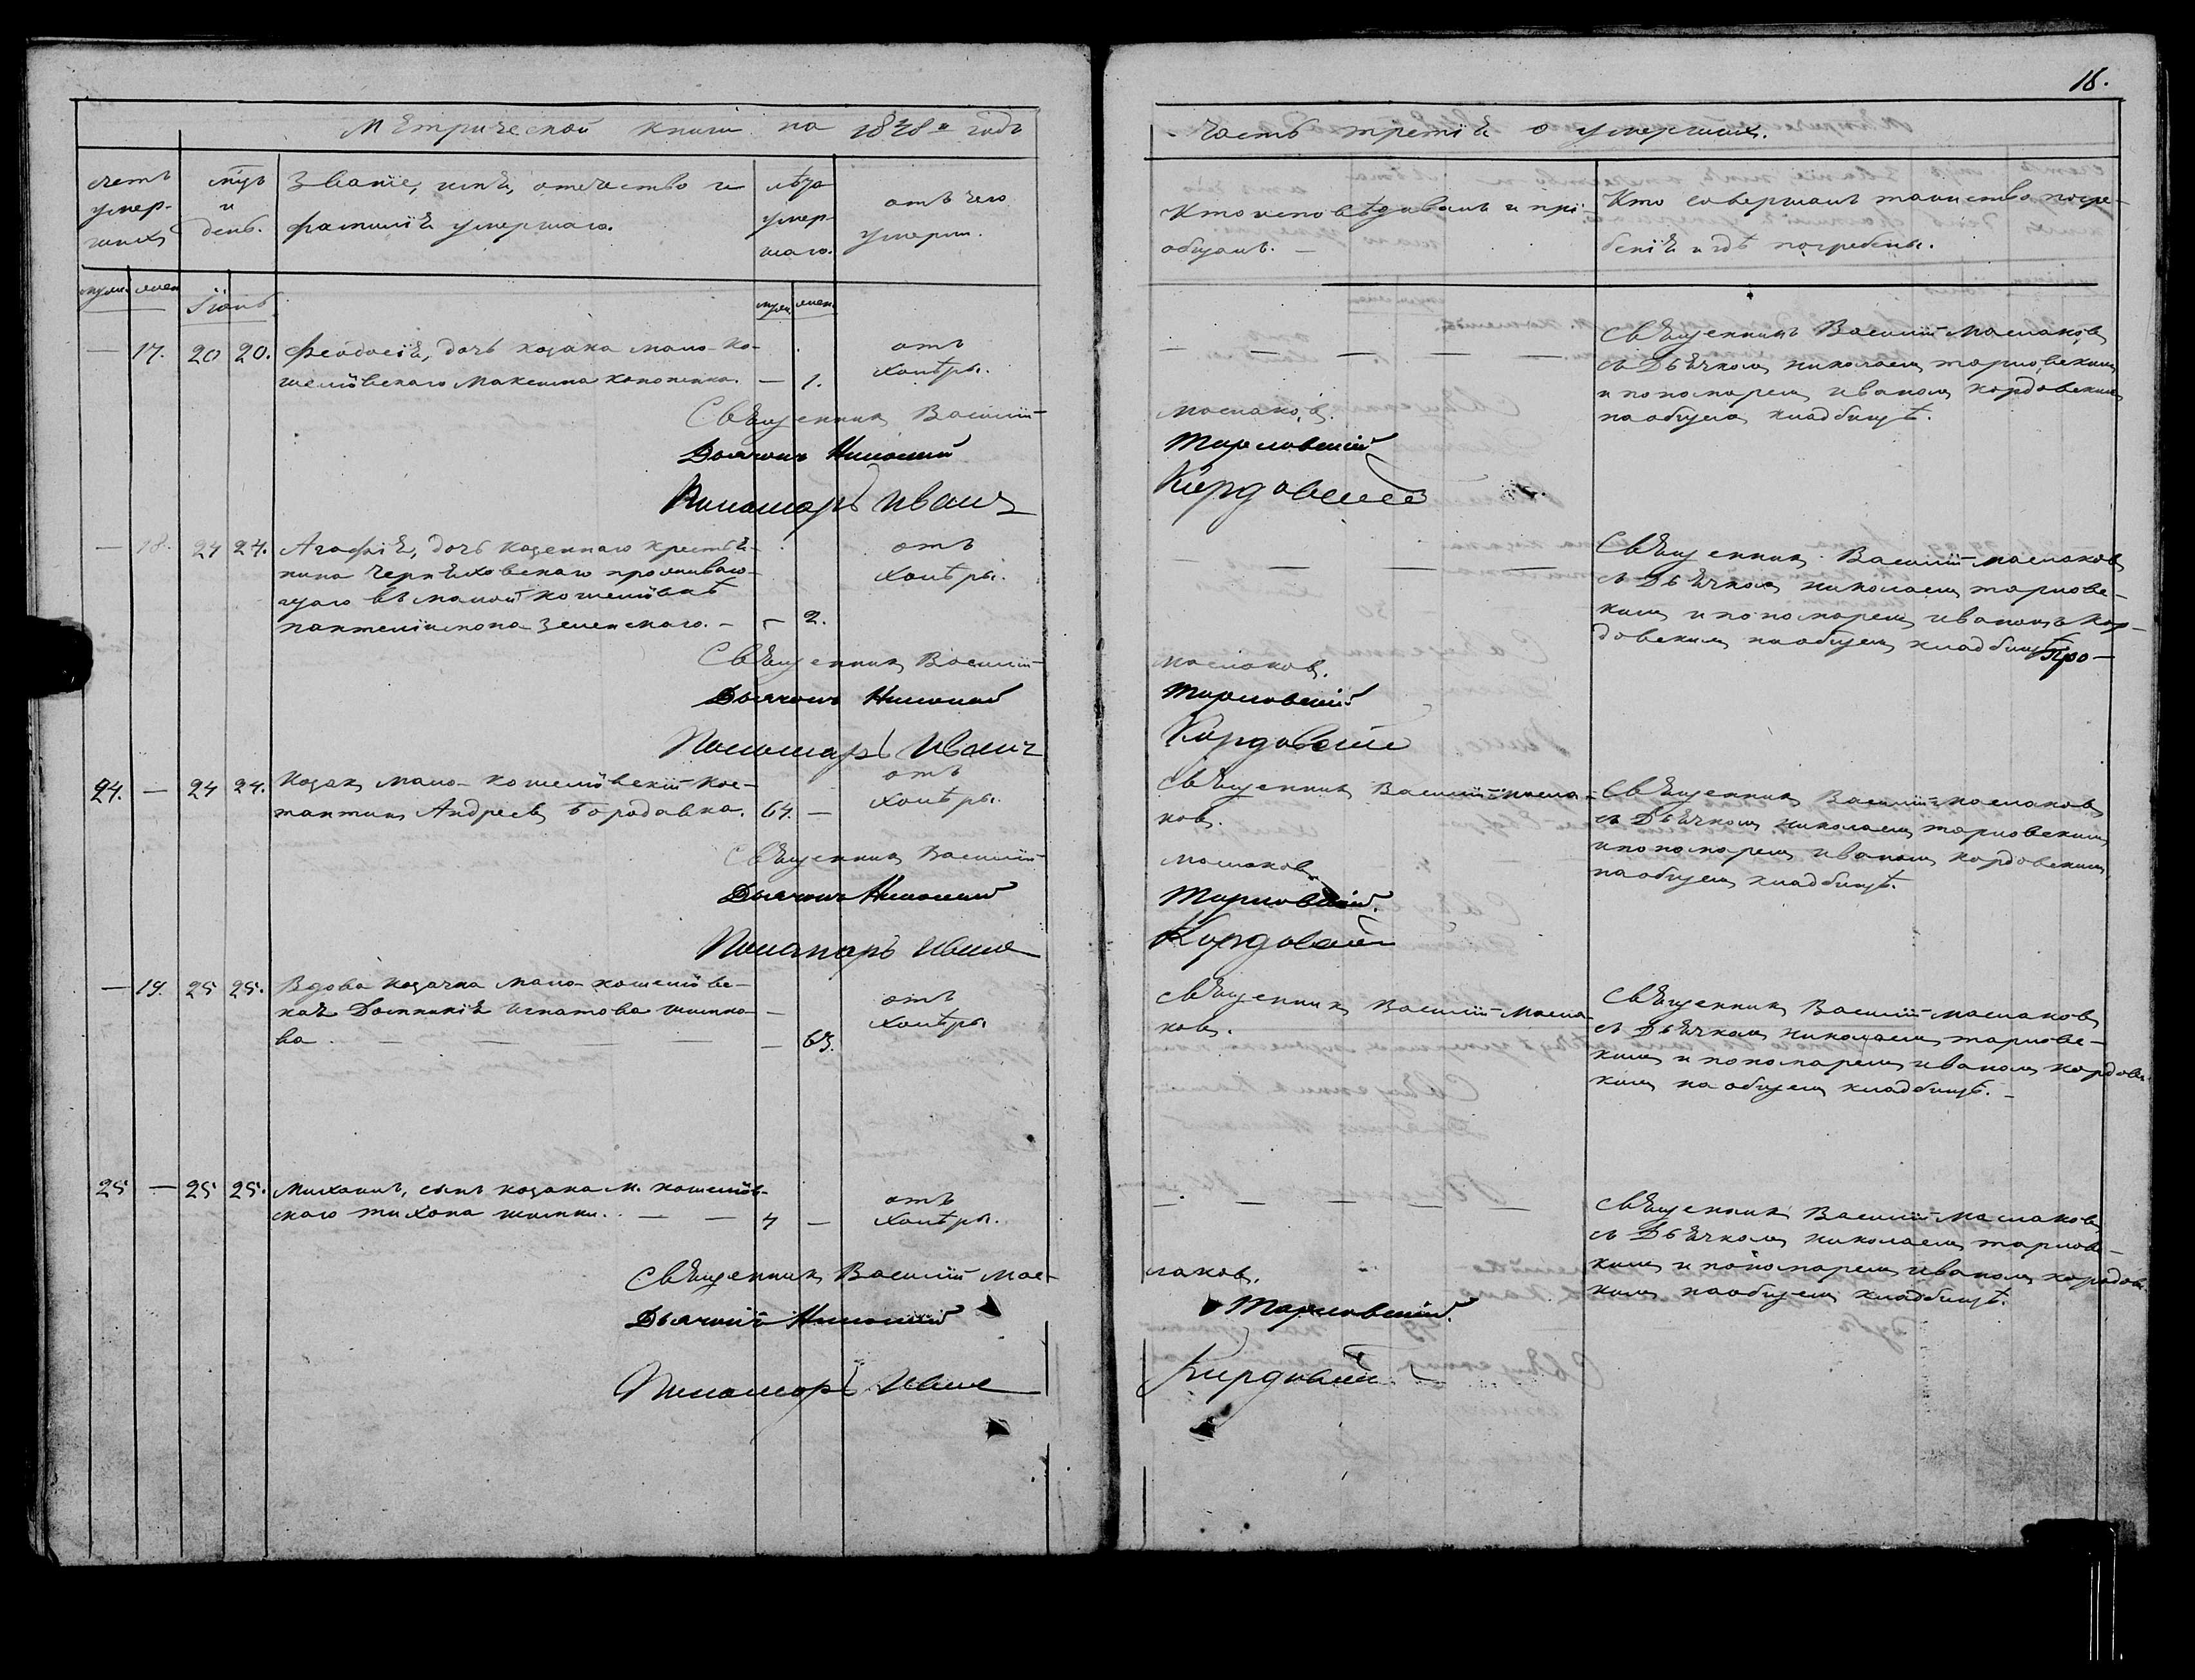 18.
Метрической книги на 1848й годъ
Часть третія о умершихъ.
Счетъ умер-
шихъ
мцъ
и
день.
Званіе, имя, отечество и
фамилія умершаго.
лѣта
умер-
шаго.
отъ чего
умеръ.
Кто исповѣдывалъ и прі-
общалъ. —
Кто совершалъ таинство погре-
бенія и гдѣ погребены.
муж. жен.
Іюнь
муж. жен.
— 17. 20 20. Феодосія, дочь козака мало-ко-
шелѣвскаго Максима Кононенка. — 1.
отъ
холѣры.
— — — — —
Священникъ Василій Маслаковъ
съ Дьячкомъ Николаемъ Тарновскимъ
и пономаремъ Иваномъ Кордовскимъ
на общемъ кладбищѣ.
Священникъ Василій Маслаковъ.
Дьячокъ Николай Тарновскій
Пономарь Иванъ Кордовскій
— 18. 24 24. Агафія, дочь казеннаго крестья-
нина Черняховскаго проживаю-
щаго въ малой Кошелѣвкѣ
Пантелиимона Зеленскаго. — — 2.
отъ
холѣры.
— — — —
Священникъ Василій Маслаковъ
съ Дьячкомъ Николаемъ Тарнове-
кимъ и пономаремъ Иваномъ Кор-
довскимъ на общемъ кладбищѣ.
Про—
Священникъ Василій Маслаковъ.
Дьячокъ Николай Тарновскій
Пономарь Иванъ Кордовскій
24. — 24 24. Козакъ мало-кошелѣвскій Кос-
тантинъ Андреевъ Бородавка. 64. —
отъ
холѣры.
Священникъ Василій Масла-
ковъ.
Священникъ Василій Маслаковъ
съ Дьячкомъ Николаемъ Тарновскимъ
и пономаремъ Иваномъ Кордовскимъ
на общемъ кладбищѣ.
Священникъ Василій Маслаковъ
Дьячокъ Николай Тарновскій.
Пономарь Иванъ Кордовскій
— 19. 25 25. Вдова козачка мало-кошелѣвс-
кая Домникія Игнатова
ва. — — — — — — 63.
отъ
холѣры
Священникъ Василій Масла-
ковъ.
Священникъ Василій Маслаковъ
съ Дьячкомъ Николаемъ Тарновс-
кимъ и пономаремъ Иваномъ Кордовс-
кимъ на общемъ кладбищѣ. —
25 — 25 25. Михаилъ, сынъ козака м. кошелѣв-
скаго Тихона — — 4 —
отъ
холѣры.
— — — — —
Священникъ Василій Маслаковъ
съ Дьячкомъ Николаемъ Тарновс-
кимъ и пономаремъ Иваномъ Кордовс-
кимъ на общемъ кладбищѣ.
Священникъ Василій Маслаковъ.
Дьячокъ Николай Тарновскій.
Пономарь Иванъ Кордовскій